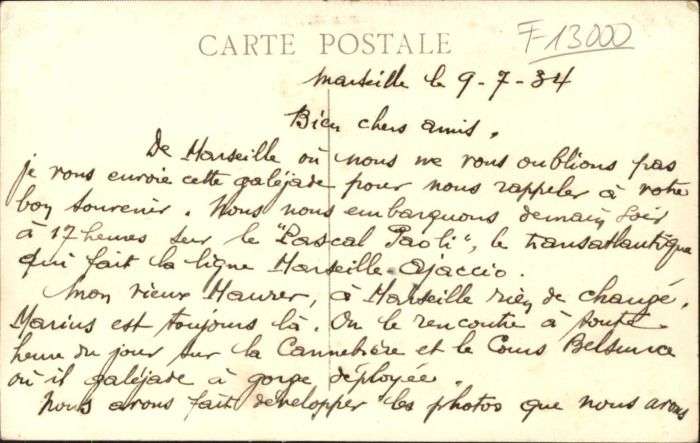 CARTE POSTALE
F-13000
Marseille le 9-7-34
Bien chers amis,
De Marseille où nous ne vous oublions pas
je vous envoie cette galéjade pour nous rappeler à votre
bon souvenir. Nous nous embarquons demain soir
à 17 heures sur le "Pascal Paoli", le transatlantique
qui fait la ligne Marseille-Ajaccio.
Mon vieux Maurer, à Marseille rien de changé,
Marius est toujours là. On le rencontre à toute
heure du jour sur la Cannebière et le Cours Belsunce
où il galéjade à gorge déployée.
Nous avons fait développer les photos que nous avons